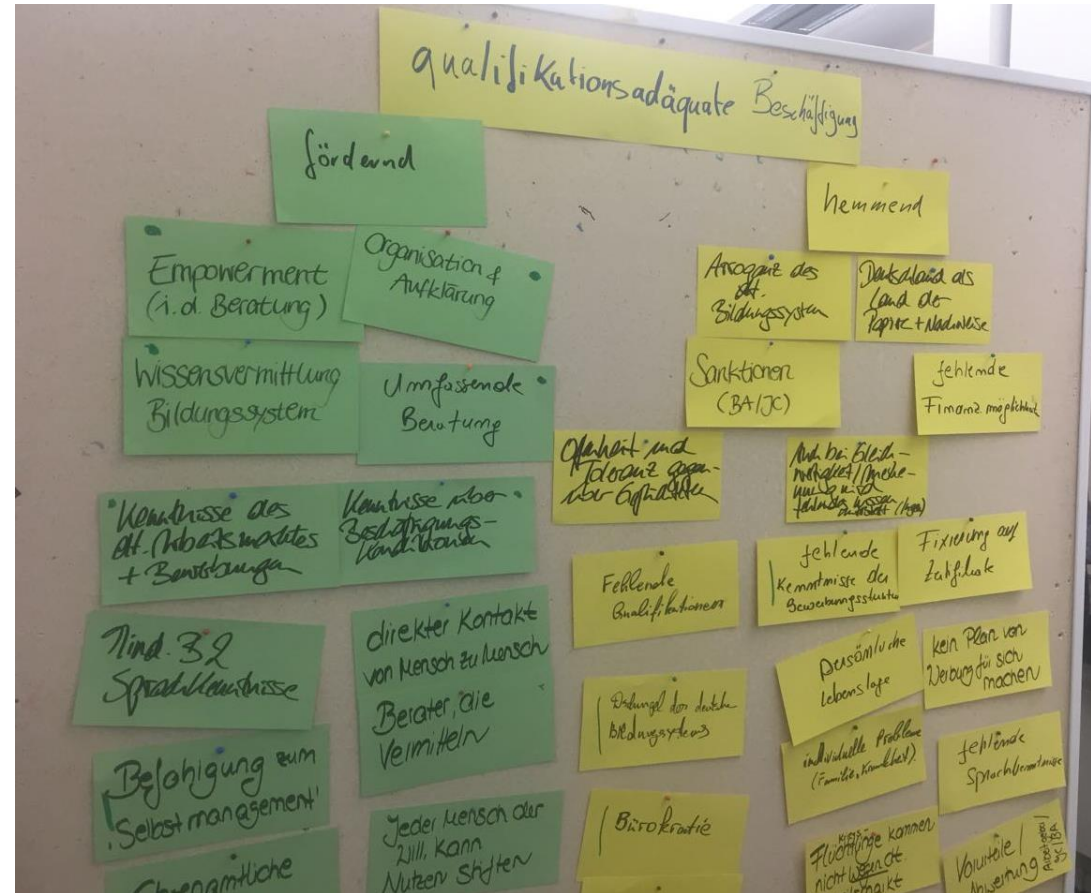 qualifikationsadäquate Beschäftigung
fördernd
Empowerment
(i.d. Beratung)
Organisation &
Aufklärung
Wissensvermittlung
Bildungssystem
Umfassende
Beratung
Kenntnisse des
dt. Arbeitsmarktes
+ Bewerbungen
Kenntnisse über
Beschäftigungs-
konditionen
Mind. B2
Sprachkenntnisse
direkter Kontakt
von Mensch zu Mensch
Berater, die
Vermitteln
Befähigung zum
'Selbstmanagement'
Jeder Mensch der
will, kann
Nutzen stiften
Ehrenamtliche
hemmend
Arroganz des
dt.
Bildungssystem
Deutschland als
Land der
Papiere + Nachweise
Sanktionen
(BA/JC)
fehlende
Finanzmöglichkeit
Offenheit und
Toleranz gegen-
über Geflüchteten
Auch bei Gleich-
fehlendes Wissen
Fehlende
Qualifikationen
fehlende
Kenntnisse der
Bewerbungsstruktur
Fixierung auf
Zertifikate
Dschungel des deutschen
Bildungssystems
persönliche
Lebenslage
kein Plan von
Werbung für sich
machen
individuelle Probleme
(Familie, Krankheit)
fehlende
Sprachkenntnisse
Bürokratie
Flüchtlinge kommen
nicht
Vorurteile /
JC/BA